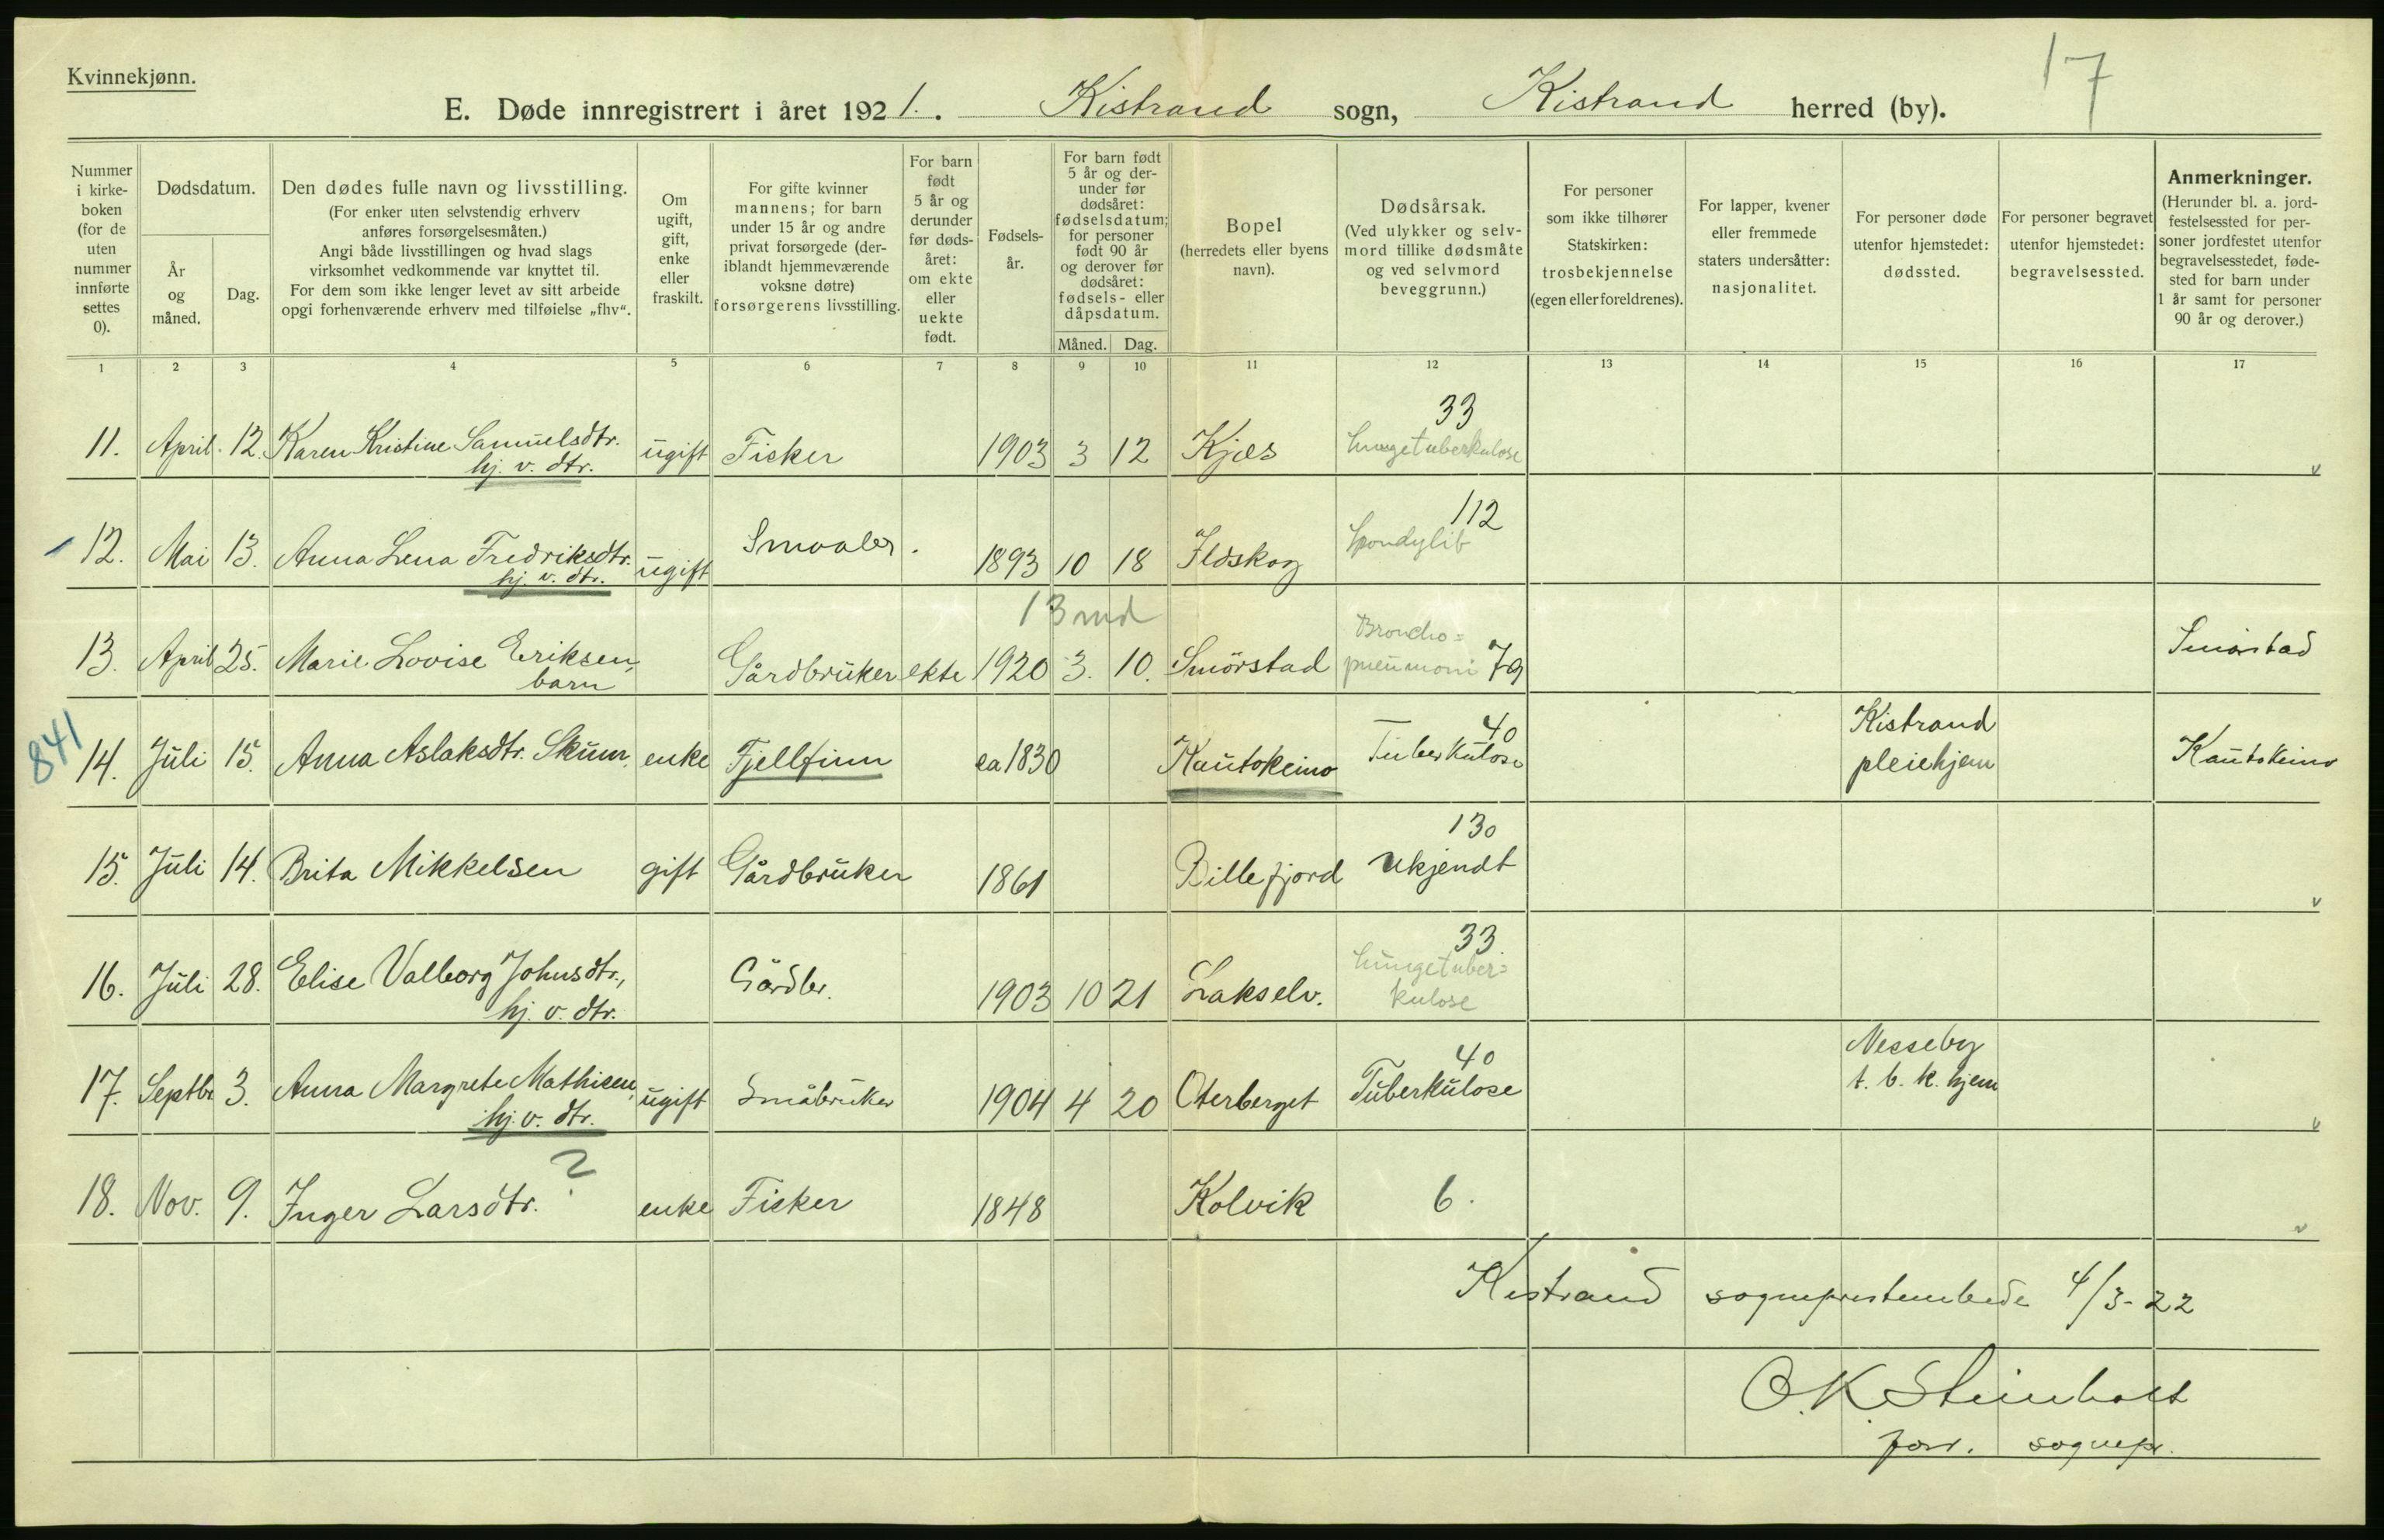 Kvinnekjønn.
17
E. Døde innregistrert i året 1921. Kistrand sogn, Kistrand herred (by).
Nummer i kirke- boken (for de uten nummer innførte settes 0).
Dødsdatum.
År og måned.
Dag.
Den dødes fulle navn og livsstilling.
(For enker uten selvstendig erhverv
anføres forsørgelsesmåten.)
Angi både livsstillingen og hvad slags
virksomhet vedkommende var knyttet til.
For dem som ikke lenger levet av sitt arbeide
opgi forhenværende erhverv med tilføielse „fhv“.
Om ugift, gift, enke eller fraskilt.
For gifte kvinner
mannens; for barn
under 15 år og andre
privat forsørgede (der-
iblandt hjemmeværende
voksne døtre)
forsørgerens livsstilling.
For barn født 5 år og derunder før døds- året: om ekte eller uekte født.
Fødsels- år.
For barn født
5 år og der-
under før
dødsåret:
fødselsdatum;
for personer
født 90 år
og derover før
dødsåret:
fødsels- eller
dåpsdatum.
Måned. Dag.
Bopel
(herredets eller byens
navn).
Dødsårsak.
(Ved ulykker og selv-
mord tillike dødsmåte
og ved selvmord
beveggrunn.)
For personer
som ikke tilhører
Statskirken:
trosbekjennelse
(egen eller foreldrenes).
For lapper, kvener
eller fremmede
staters undersåtter:
nasjonalitet.
For personer døde
utenfor hjemstedet:
dødssted.
For personer begravet
utenfor hjemstedet:
begravelsessted.
Anmerkninger.
(Herunder bl. a. jord-
festelsessted for per-
soner jordfestet utenfor
begravelsesstedet, føde-
sted for barn under
1 år samt for personer
90 år og derover.)
1 2 3 4 5 6 7 8 9 10 11 12 13 14 15 16 17
33
11. April. 12. Karen Kristine Samuelsdtr. ugift Fisker 1903 3 12 Kjæs Lungetuberkulose
hj. v. dtr.
112
12. Mai 13. Anna Lena Fredriksdtr. ugift Smaabr. 1893 10 18 Ildskog Spondylit
hj. v. dtr.
13 md
Broncho=
13. April 25. Marie Lovise Eriksen, Gårdbruker ekte 1920 3. 10. Smörstad pneumoni 79 Smörstad
barn
841
40
Kistrand
14. Juli 15. Anna Aslaksdtr. Skum, enke Fjellfinn ca 1830 Kautokeino Tuberkulose pleiehjem Kautokeino
130
15. Juli 14. Brita Mikkelsen gift Gårdbruker 1861 Billefjord Ukjendt
33.
16. Juli 28. Elise Valborg Johnsdtr., Gårdbr. 1903 10 21 Lakselv. Lungetuber=
hj. v. dtr. kulose
40
Nesseby
17. Septbr 3. Anna Margrete Mathisen, ugift Småbruker 1904 4 20 Oterberget Tuberkulose t. b. k. hjem
hj. v. dtr.
?
18. Nov. 9. Inger Larsdtr. enke Fisker 1848 Kolvik 6.
Kistrand sogneprestembede 4/3-22
O. K. Steinholt
forr. sognepr.